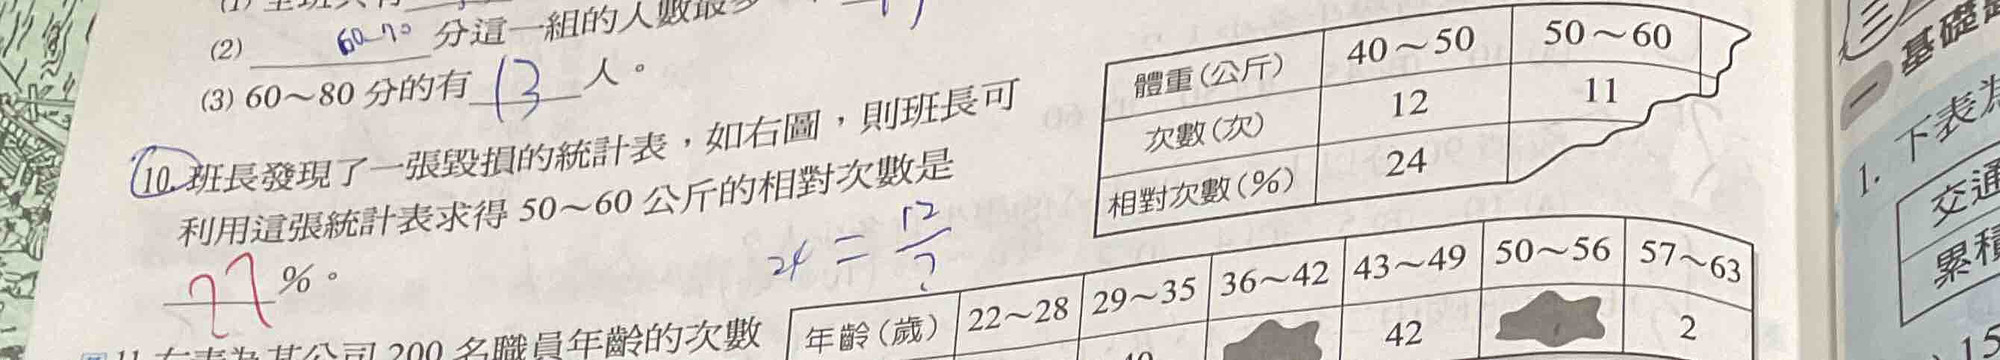 (2) 60~70 分這一組的人數最多
(3) 60～80 分的有 13 人。
10. 班長發現了一張毀損的統計表，如右圖，則班長可
利用這張統計表求得 50～60 公斤的相對次數是
22 %。
24 = 12/?
體重(公斤) 40～50 50～60
次數(次) 12 11
相對次數(%) 24
200 名職員年齡的次數
年齡(歲) 22～28 29～35 36～42 43～49 50～56 57～63
42 2
基礎
一
1. 下表為
交通
累積
15